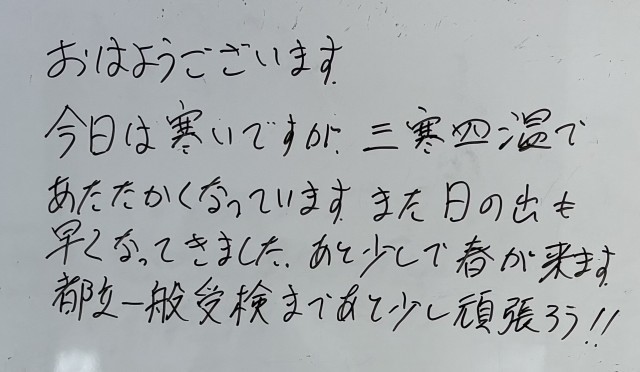 おはようございます。
今日は寒いですが、三寒四温で
あたたかくなっています。また日の出も
早くなってきました。あと少しで春が来ます。
都立一般受検まであと少し頑張ろう!!